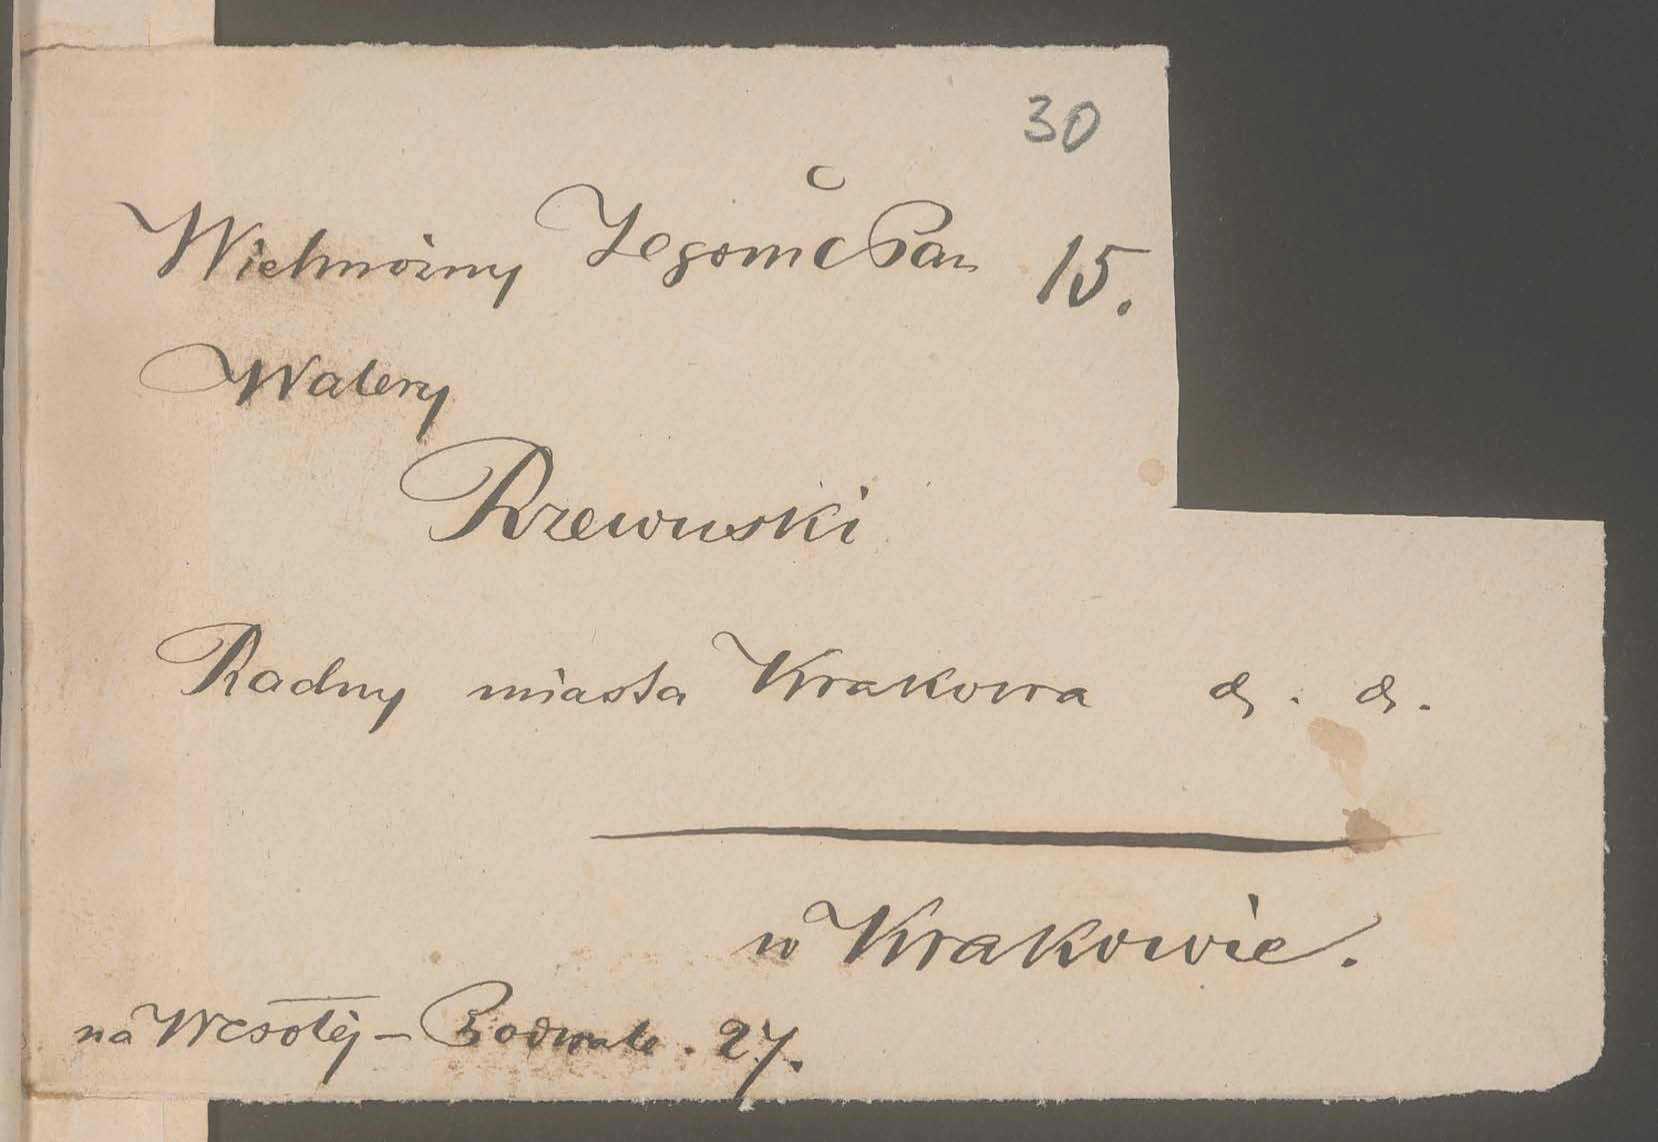 30
Wielmożny Jegomć Pan 15.
Walery
Rzewuski
Radny miasta Krakowa & . & .
w Krakowie.
na Wesołéj – Podwale . 27.